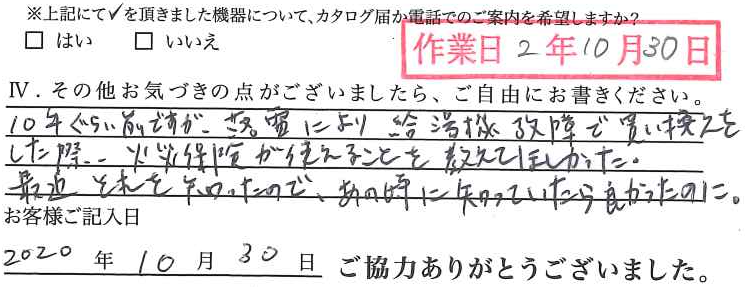 ※上記にて✓を頂きました機器について、カタログ届か電話でのご案内を希望しますか?
□ はい □ いいえ
作業日 2年10月30日
Ⅳ．その他お気づきの点がございましたら、ご自由にお書きください。
10年ぐらい前ですが、落雷により給湯機故障で買い換えを
した際、火災保険が使えることを教えてほしかった。
最近それを知ったので、あの時に知っていたら良かったのに。
お客様ご記入日
2020 年 10 月 30 日 ご協力ありがとうございました。